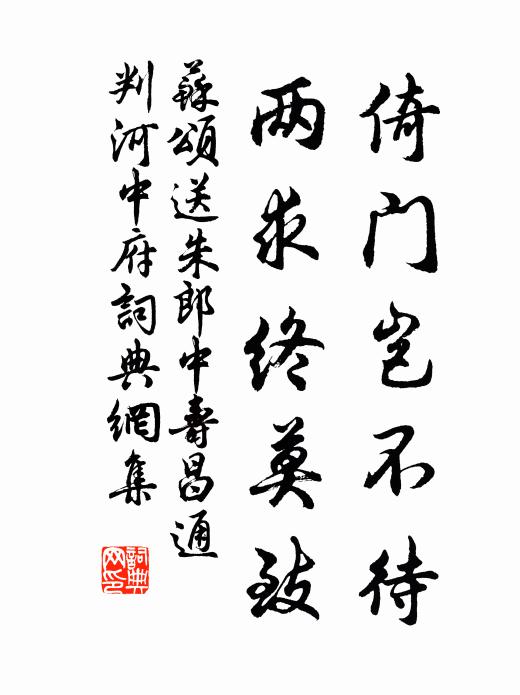 倚门岂不待
两求终莫致
蘇頌送朱郎中壽昌通
判河中府詞典網集
詞典
网印